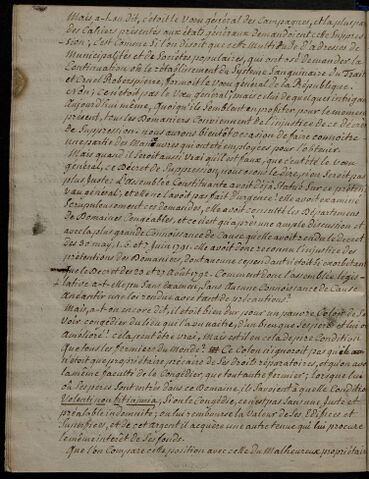 Mais, a-t-on dit, c'étoit le vœu général des Campagnes, et la plus part
des Cahiers présentés aux états généraux demandoient cette Suppres-
sion; c'est comme si l'on disoit que cette Multitude d'adresses de
Municipalités et de Sociétés populaires, qui ont osé demander la
Continuation ou le rétablissement du Système Sanguinaire du Traitre
et Cruel Robespierre, formoit le vœu général de la République.
Non; ce n'étoit pas le vœu général, mais celui de quelques intrigans
aujourd'hui même, quoiqu'ils semblent en profiter pour le moment
présent, tous les Domaniers Conviennent de l'injustice de ce décret
de Suppression. nous aurons bientôt occasion de faire connoitre
une partie des Manœuvres qui ont été employées pour l'obtenir.
Mais quand il Seroit aussi Vrai qu'il est faux, que c'eut été le vœu
général, ce Décret de Suppression, nous osons le dire, n'en Seroit pas
plus juste: L'assemblée Constituante avoit déjà Statué Sur ce prétendu
vœu général, et elle ne l'avoit pas fait d'urgence: elle avoit examiné
Scrupuleusement ces demandes, elle avoit consulté les Départemens
de Domaines Congéables, et ce n'est qu'après une ample discussion et
avec la plus grande Connoissance de Cause qu'elle avoit rendu le Décret
des 30 may, 1, 6 et 7 juin 1791. elle avoit donc reconnu l'injustice des
prétentions des Domaniers, dont aucune cependant n'étoit si exorbitante
que le Décret des 23 et 27 Août 1792. Comment donc l'assemblée légis-
lative a-t-elle pu Sans examen, Sans aucune Connoissance de Cause
anéantir une loi rendue avec tant de précautions?
Mais, a-t-on encore dit, il étoit bien dur pour un pauvre Colon de se
voir congédier du lieu qui l'a vu naitre, d'un bien que ses pères et lui ont
amélioré! Cela peut être vrai, Mais est-il en cela de pire Condition
que tous les fermiers du monde? Le Colon n'ignoroit pas qu'il
n'étoit que propriétaire précaire de Ses droits réparatoires, et qu'on avoit
la même faculté de le Congédier, que tout autre fermier; lorsque lui
ou Ses pères Sont entrés dans ce Domaine, ils Savoient à quelle Condition
Volenti non fit injuria; Si on le Congédie, ce n'est pas Sans une juste et
préalable indemnité; on lui rembourse la Valeur de Ses Edifices et
Superfices, et de cet argent il acquière une autre tenue qui lui procure
le même intérêt de Ses fonds.
Que l'on Compare cette position avec celle du Malheureux propriétaire